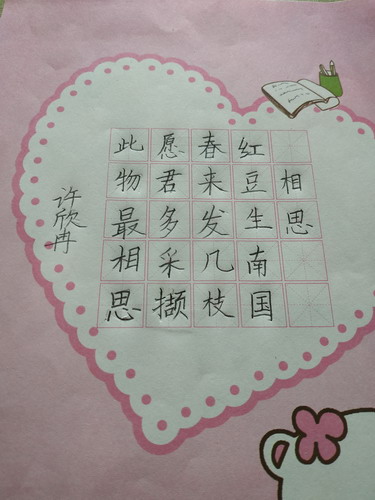 相思
红豆生南国
春来发几枝
愿君多采撷
此物最相思
许欣冉